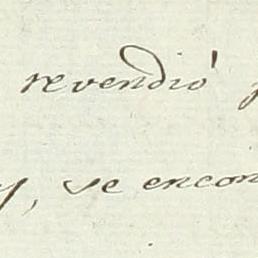 revendió
y, se encon